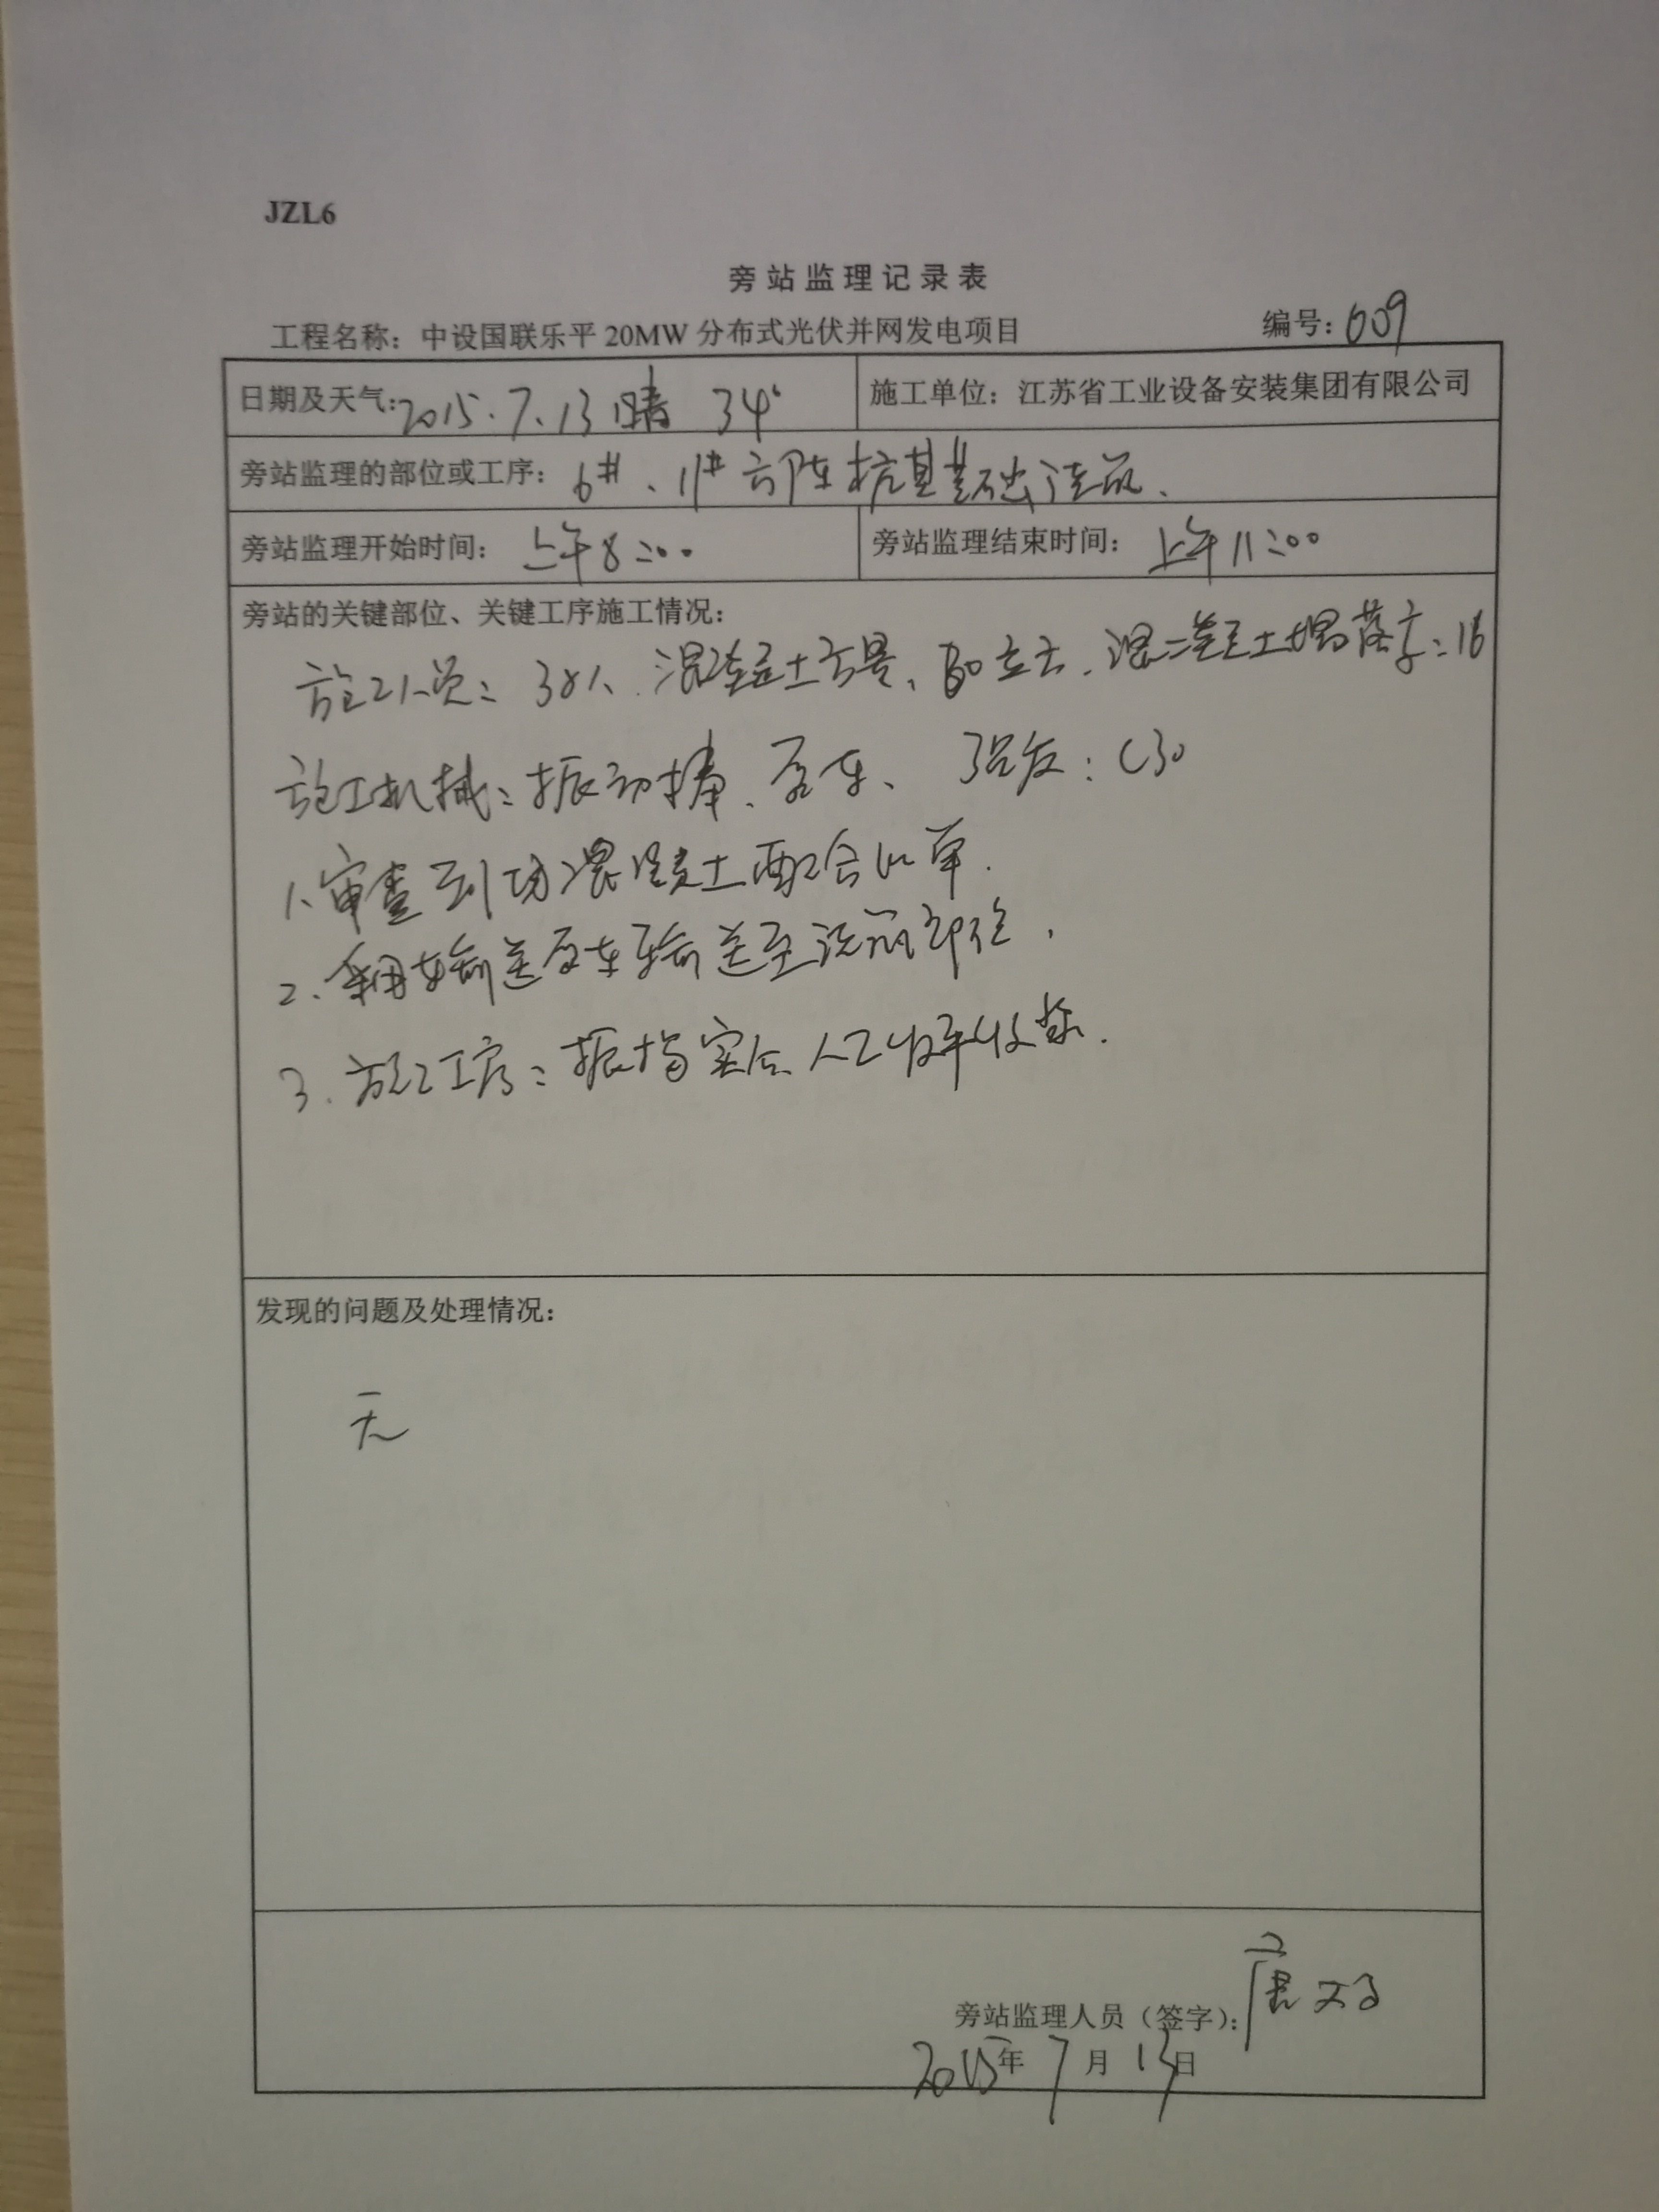 JZL6
旁站监理记录表
工程名称：中设国联乐平 20MW 分布式光伏并网发电项目 编号：009
日期及天气：2015.7.13 晴 34° 施工单位：江苏省工业设备安装集团有限公司
旁站监理的部位或工序：6#、11# 方阵桩基基础浇筑、
旁站监理开始时间： 上午8:00 旁站监理结束时间： 上午11:00
旁站的关键部位、关键工序施工情况：
施工人员：38人、混凝土方量、立方、混凝土塌落度：16
施工机械：振动棒、泵车、 强度：C30
1、审查到场混凝土配合比单.
2、采用输送泵车输送至浇筑部位、
3、施工工序：振捣实后、人工收平收浆.
发现的问题及处理情况：
无
旁站监理人员（签字）：唐
2015年 7 月 13日